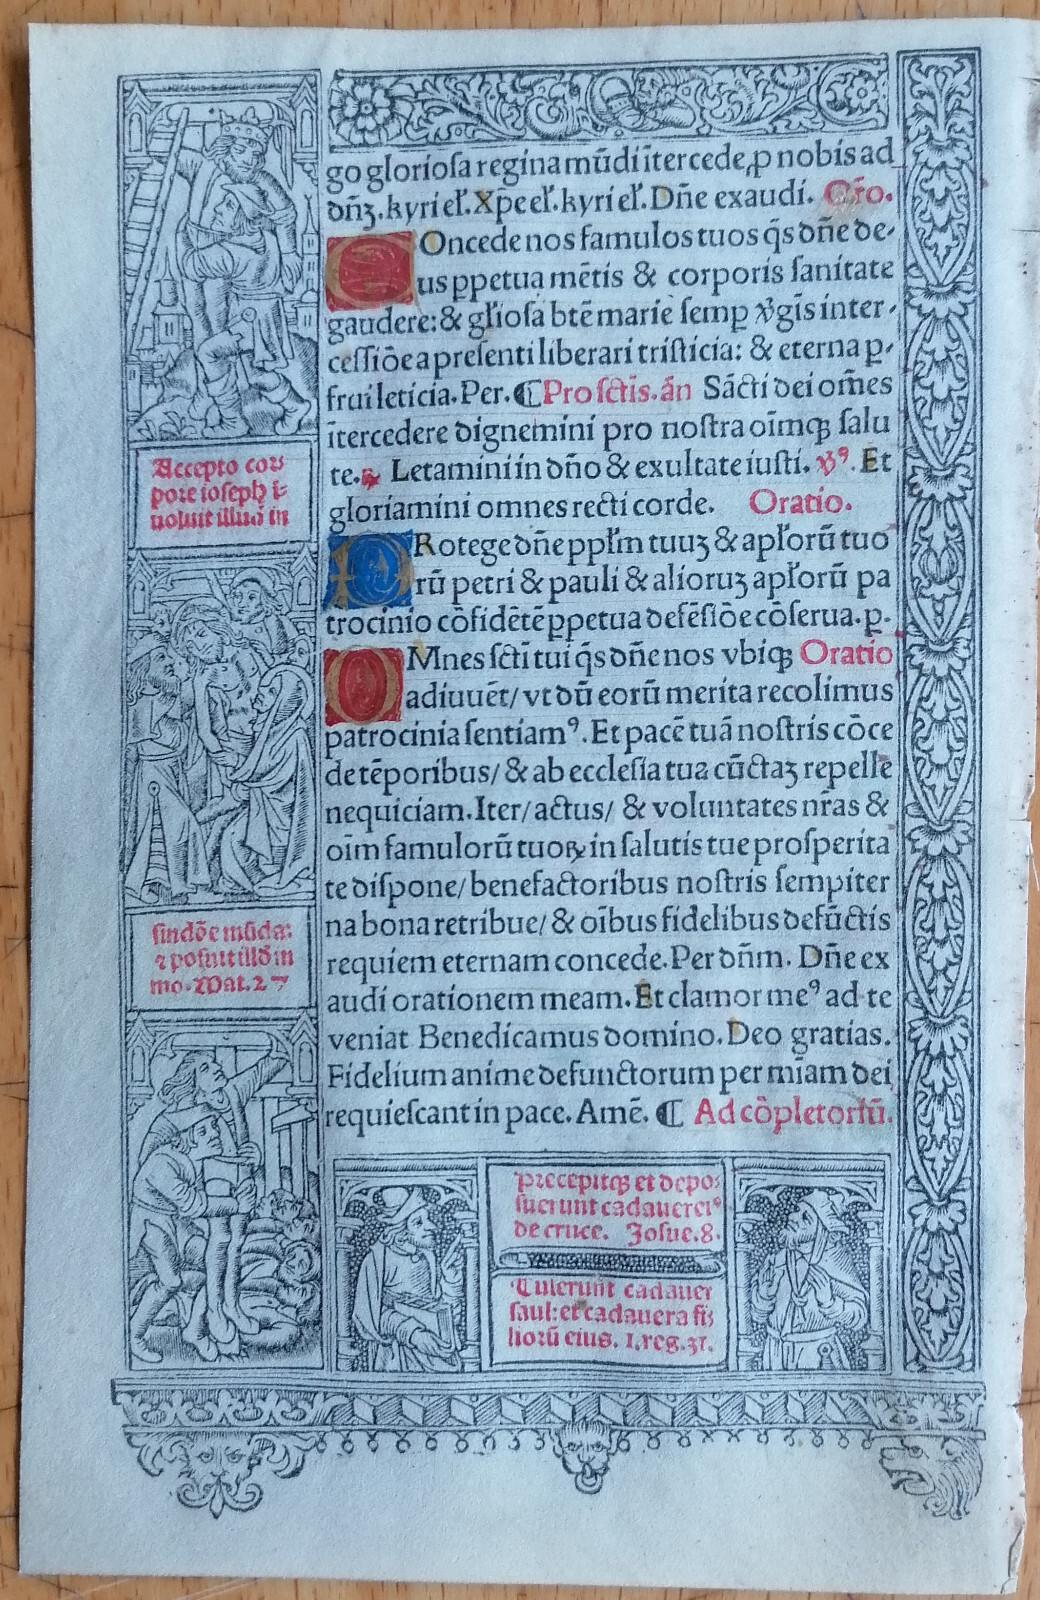 go glorioſa regina mūdi ītercede ꝓ nobis ad
dn̄ꝫ. kyriel̄. Xp̄e el̄. kyriel̄. Dn̄e exaudi. Oro.
COncede nos famulos tuos q̄s dn̄e de⸗
us ꝑpetua mētis & corporis ſanitate
gaudere: & gl̄ioſa btē marie ſemꝑ v̄gīs inter⸗
ceſſiōe a preſenti liberari triſticia: & eterna ꝑ⸗
frui leticia. Per. ¶ Pro ſctīs. ān Sācti dei om̄es
ītercedere dignemini pro noſtra oīmqꝫ ſalu
te. ꝶ Letamini in dn̄o & exultate iuſti. ꝟꝰ. Et
gloriamini omnes recti corde. Oratio.
PRotege dn̄e ppl̄m tuuꝫ & apl̄orū tuo
rū petri & pauli & alioruꝫ apl̄orū pa
trocinio cōfidētē ꝑpetua defēſiōe cōſerua. ꝑ.
OMnes ſctī tui q̄s dn̄e nos vbiqꝫ Oratio
adiuuēt/ vt dū eorū merita recolimus
patrocinia ſentiamꝰ. Et pacē tuā noſtris cōce
de tēporibus/ & ab eccleſia tua cūctaꝫ repelle
nequiciam. Iter/ actus/ & voluntates nr̄as &
oīm famulorū tuoꝝ in ſalutis tue proſperita
te diſpone/ benefactoribus noſtris ſempiter
na bona retribue/ & oībus fidelibus defūctis
requiem eternam concede. Per dn̄m. Dn̄e ex
audi orationem meam. Et clamor meꝰ ad te
veniat Benedicamus domino. Deo gratias.
Fidelium anime defunctorum per mīam dei
requieſcant in pace. Amē. ¶ Ad cōpletoriū.
Accepto cor⸗
pore ioſeph ī⸗
uoluit illud in
ſindōe mūda:
⁊ poſuit illḋ in
mo. Mat. 27
Precepitqꝫ et depo⸗
ſuerunt cadauer eiꝰ
de cruce. Joſue. 8.
Tulerunt cadauer
ſaul: et cadauera fi⸗
liorū eius. 1. reg. 31.